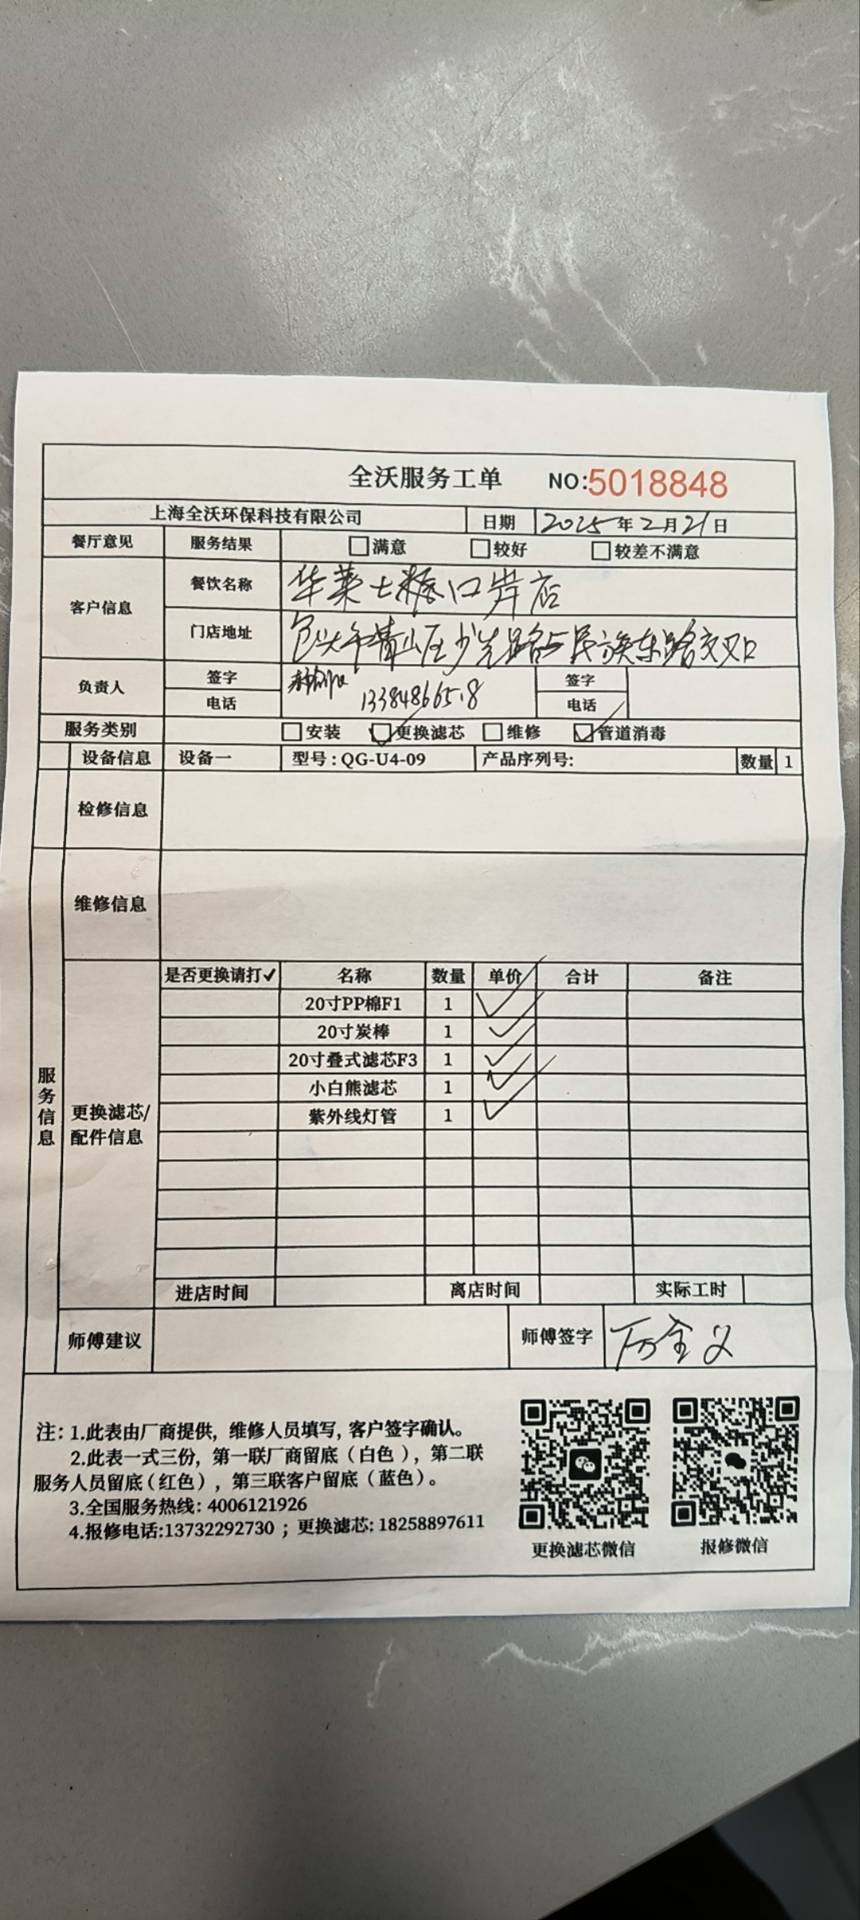 全沃服务工单 NO:5018848
上海全沃环保科技有限公司 日期 2025年2月21日
餐厅意见 服务结果 满意 较好 较差不满意
客户信息 餐饮名称 华莱士粮口岸店
门店地址 包头市青山区少先路与民族东路交叉口
负责人 签字 签字
电话 电话
服务类别 安装 更换滤芯 维修 管道消毒
设备信息 设备一 型号:QG-U4-09 产品序列号: 数量 1
检修信息
维修信息
服务信息
更换滤芯/配件信息
是否更换请打✓ 名称 数量 单价 合计 备注
20寸PP棉F1 1 ✓
20寸炭棒 1 ✓
20寸叠式滤芯F3 1 ✓
小白熊滤芯 1 ✓
紫外线灯管 1 ✓
进店时间 离店时间 实际工时
师傅建议 师傅签字
注:1.此表由厂商提供,维修人员填写,客户签字确认。
2.此表一式三份,第一联厂商留底(白色),第二联
服务人员留底(红色),第三联客户留底(蓝色)。
3.全国服务热线:4006121926
4.报修电话:13732292730;更换滤芯:18258897611
更换滤芯微信 报修微信